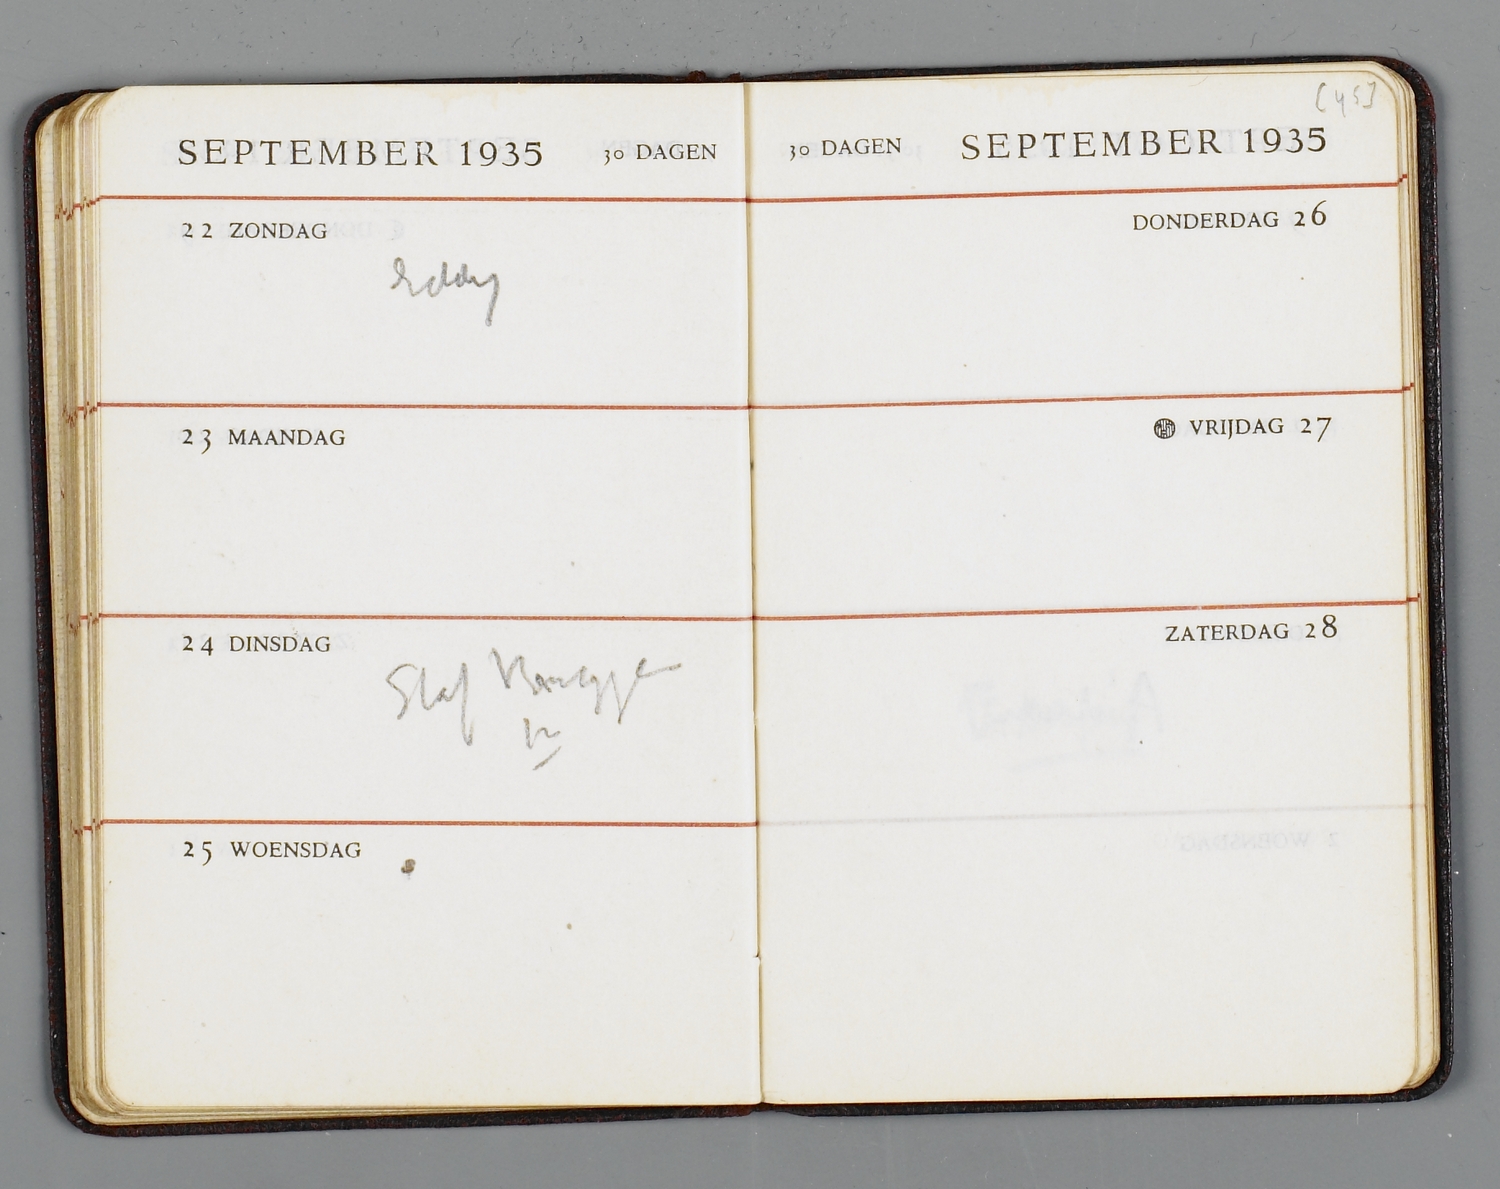 SEPTEMBER 1935 30 DAGEN
22 ZONDAG
Eddy
23 MAANDAG
24 DINSDAG
Staf
25 WOENSDAG
[45]
30 DAGEN SEPTEMBER 1935
DONDERDAG 26
VRIJDAG 27
ZATERDAG 28